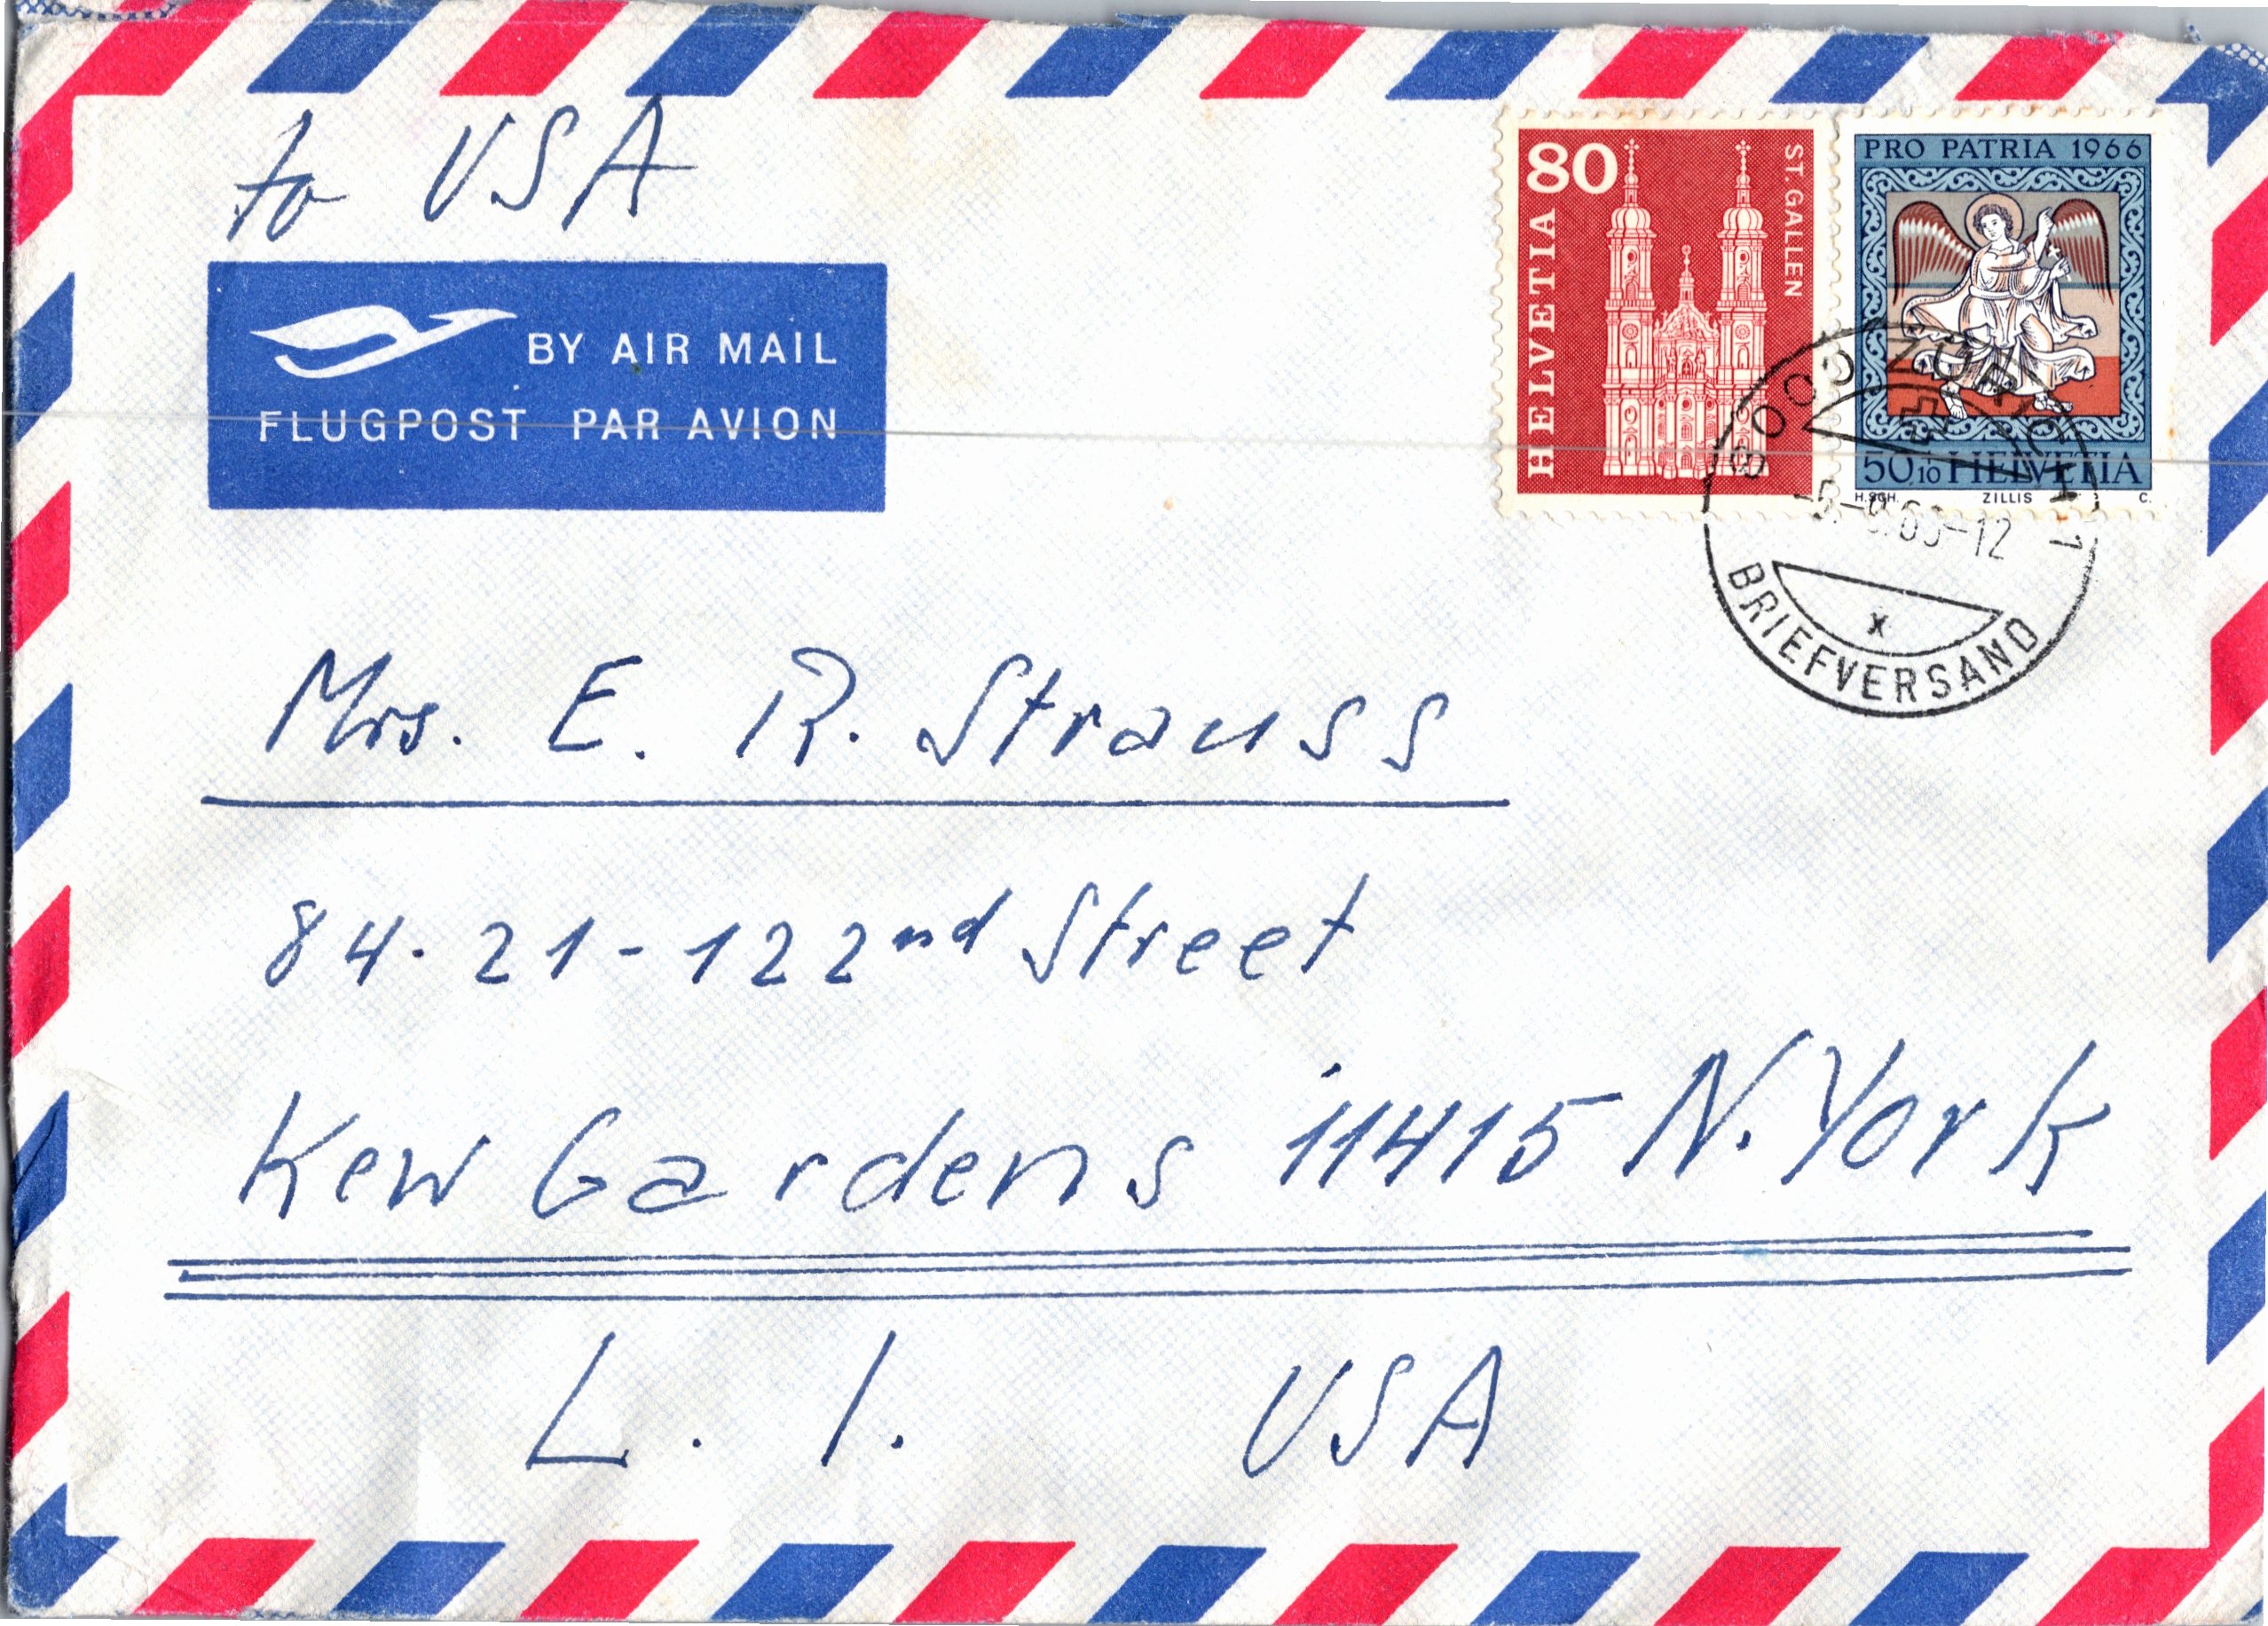 to USA
BY AIR MAIL
FLUGPOST PAR AVION
80
HELVETIA
ST. GALLEN
PRO PATRIA 1966
50+10 HELVETIA
H.SCH. ZILLIS C.
8000 ZÜRICH 1
BRIEFVERSAND
Mrs. E. R. Strauss
84-21-122nd Street
Kew Gardens 11415 N. York
L. I. USA